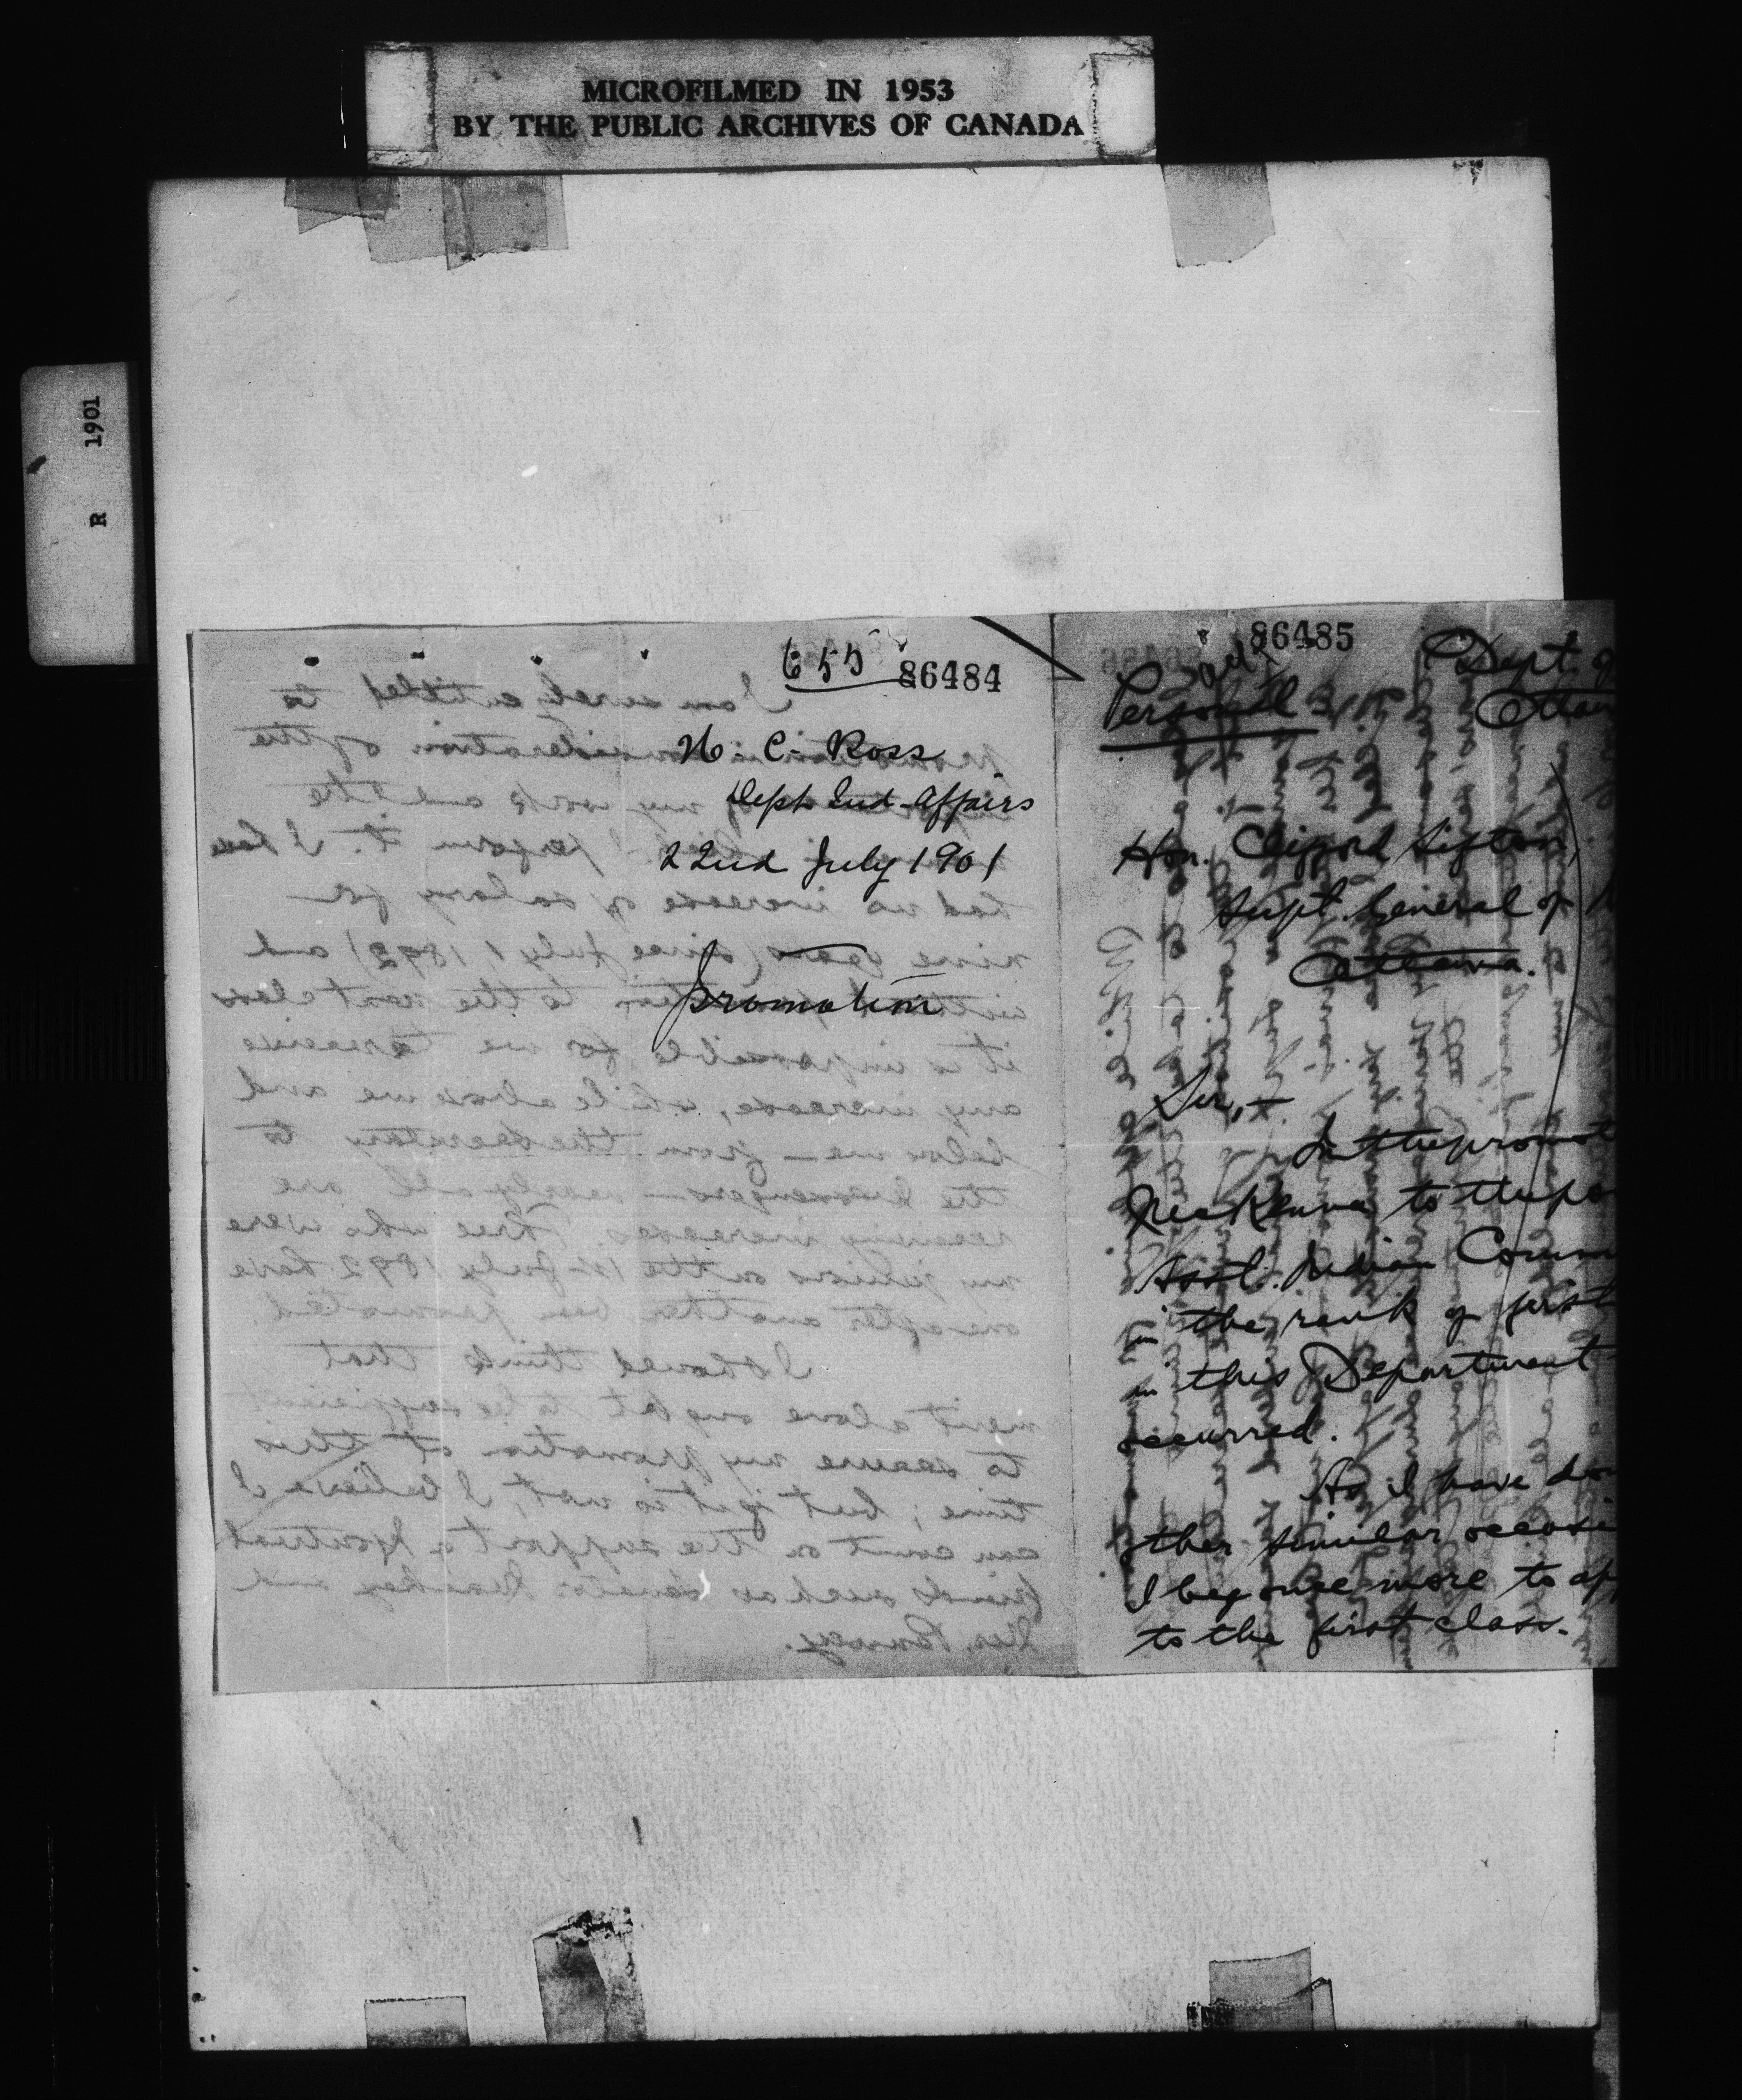 MICROFILMED IN 1953
BY THE PUBLIC ARCHIVES OF CANADA
R 1901
655 86484
H. C. Ross
Dept Ind-Affairs
22nd July 1901
Promotion
I am surely entitled to
consideration of the
my work and the
perform it. I have
had no increase of salary for
nine years (since July 1, 1892) and
to the next class
it is impossible for me to receive
any increase, while above me and
below me — from the Secretary to
the Messengers — nearly all are
receiving increases. Three who were
my juniors on the 1st July 1892 have
one after another been promoted.
I should think that
merit alone ought to be sufficient
to secure my promotion at this
time; but if it is not, I believe I
can count on the support of
friends such as Senator and
86485
Personal
Dept. of
Ottaw
Hon. Clifford Sifton,
Supt. General of
Ottawa.
Sir,—
In the promot
McKenna to the po
Asst. Indian Comm
in the rank of first
in this Department
occurred.
As I have don
other similar occasi
I beg once more to ap
to the first class.